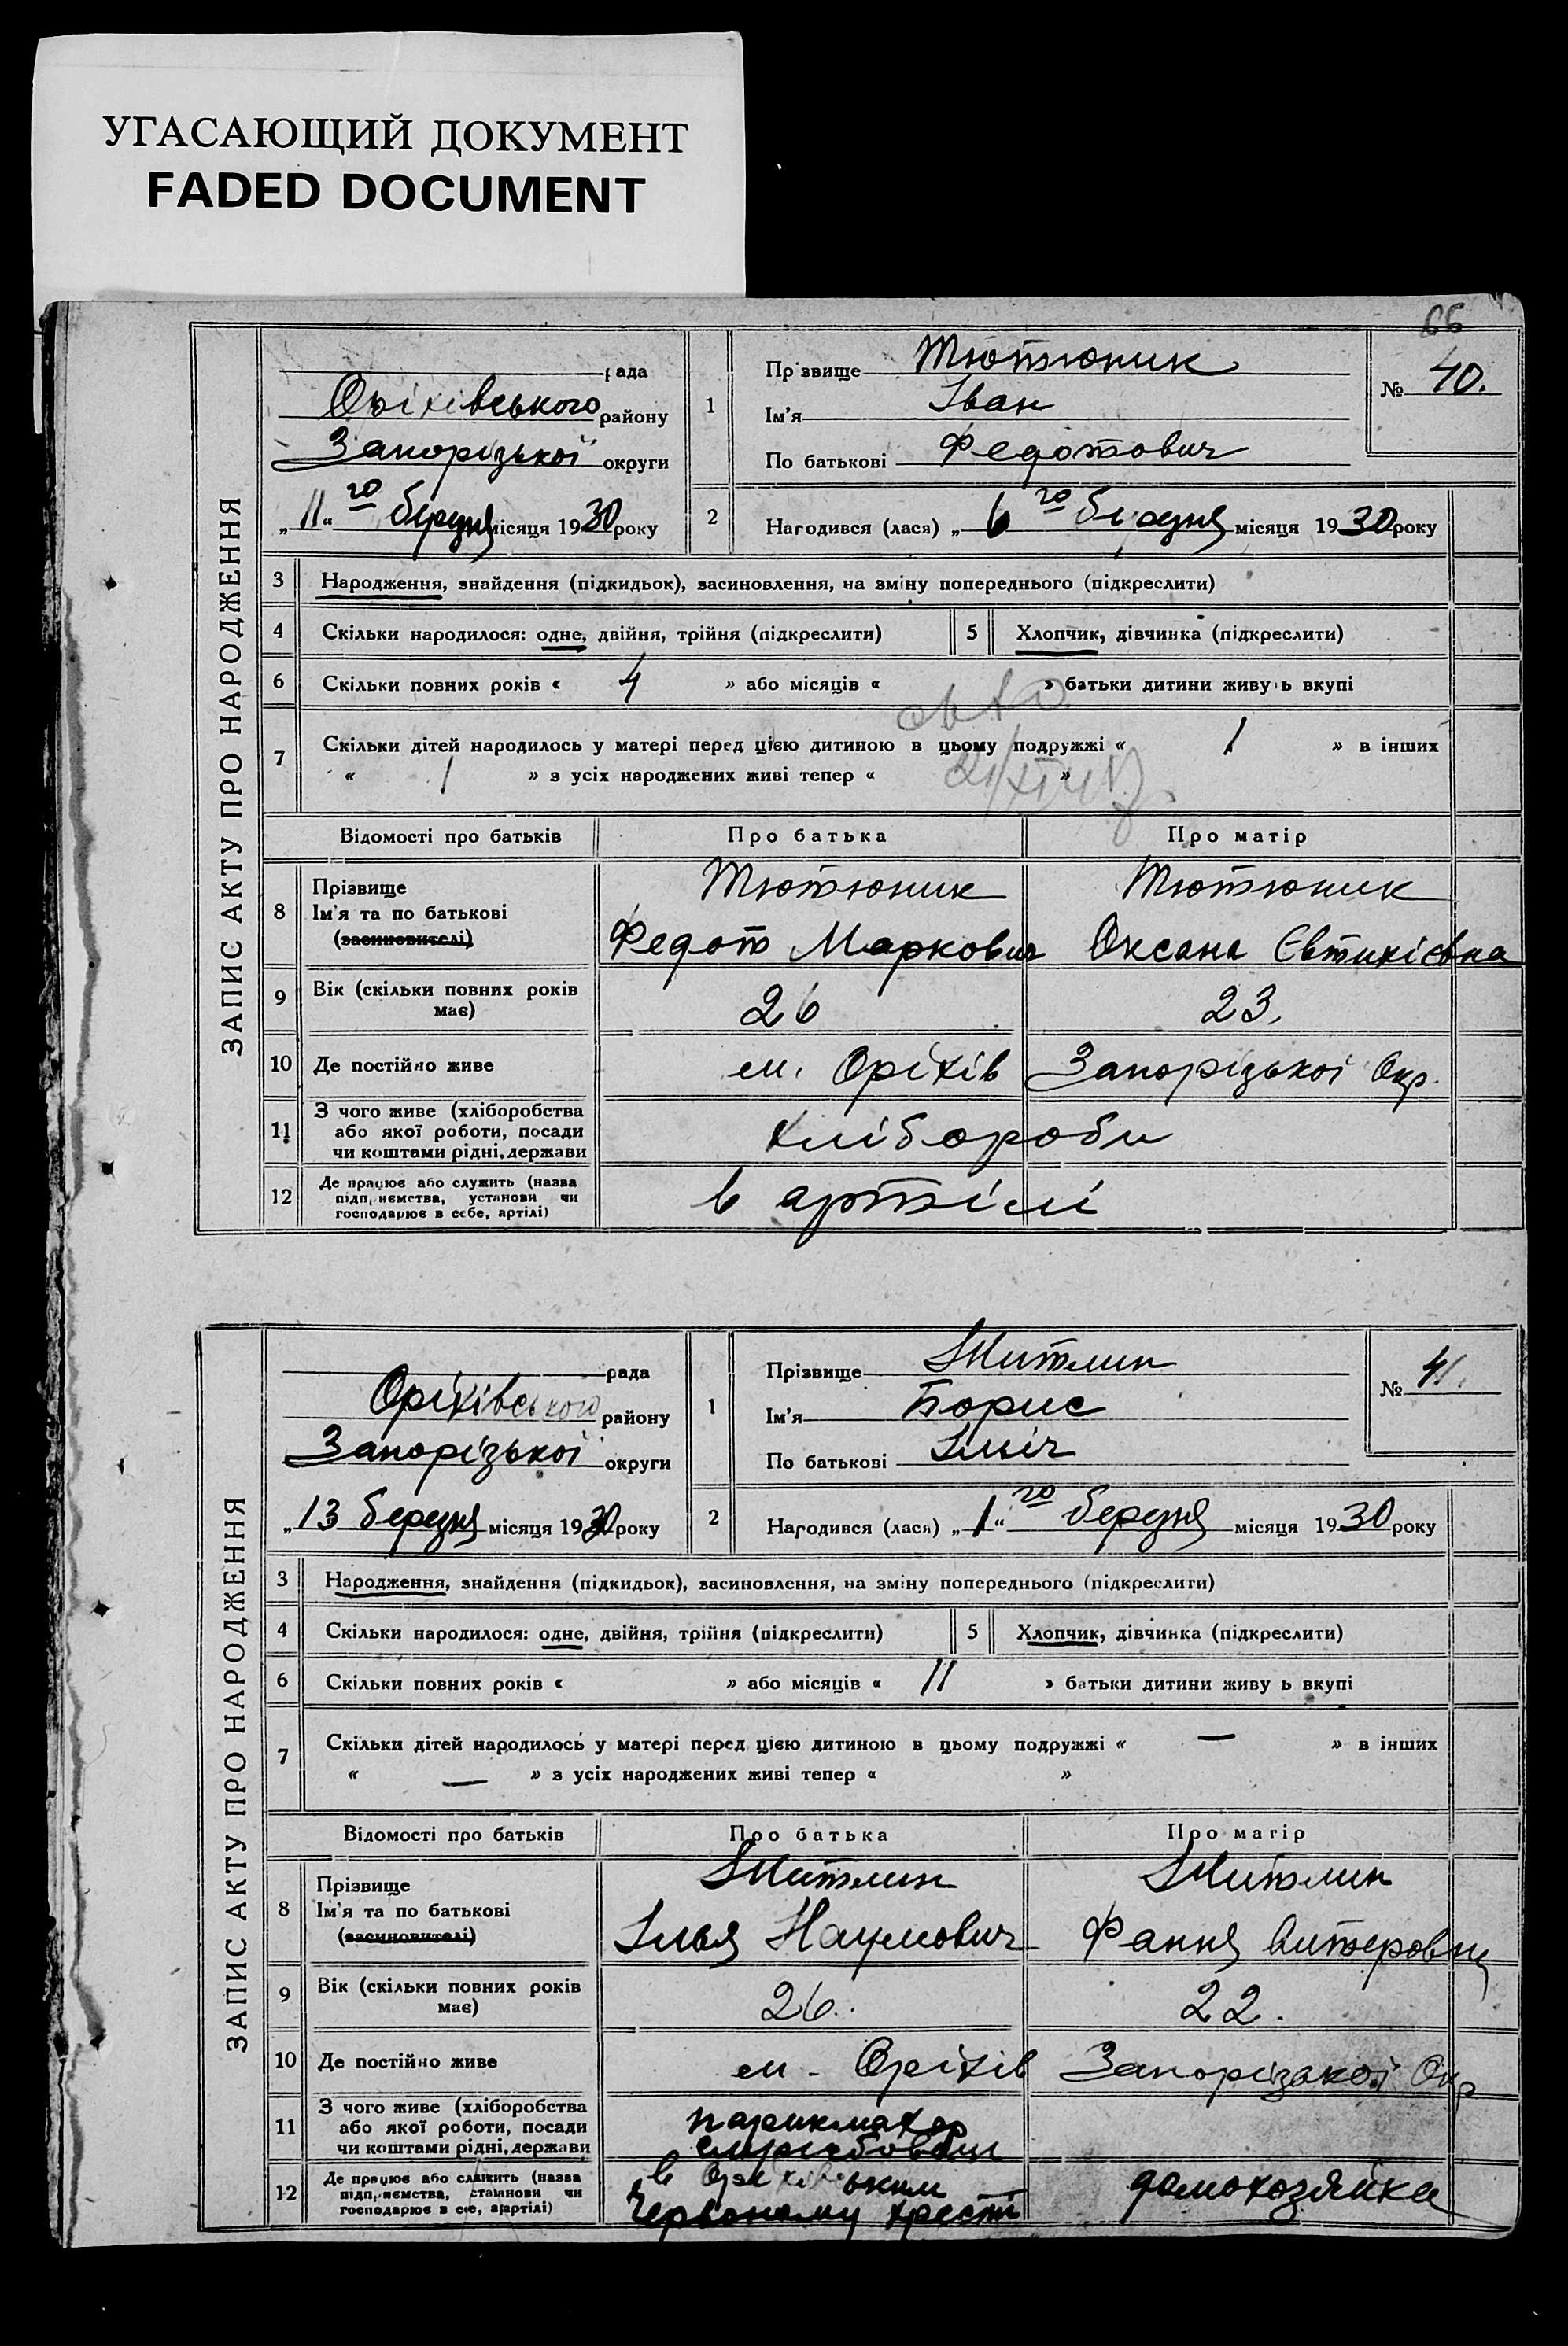 УГАСАЮЩИЙ ДОКУМЕНТ
FADED DOCUMENT
66
ЗАПИС АКТУ ПРО НАРОДЖЕННЯ
рада
Оріхівського району
Запорізької округи
„11“ го березня місяця 1930 року
1
Прізвище Тютюник
Ім'я Іван
По батькові Федотович
№ 40.
2
Народився (лася) „6 го березня місяця 1930 року
3 Народження, знайдення (підкидьок), засиновлення, на зміну попереднього (підкреслити)
4 Скільки народилося: одне, двійня, трійня (підкреслити) 5 Хлопчик, дівчинка (підкреслити)
6 Скільки повних років « 4 » або місяців « » батьки дитини живуть вкупі
7 Скільки дітей народилось у матері перед цією дитиною в цьому подружжі « 1 » в інших
« 1 » з усіх народжених живі тепер « »
Відомості про батьків Про батька Про матір
8 Прізвище
Ім'я та по батькові
(засиновителі)
Тютюник Тютюник
Федот Маркович Оксана Євтихієвна
9 Вік (скільки повних років
має)
26 23.
10 Де постійно живе м. Оріхів Запорізької Окр.
11 З чого живе (хліборобства
або якої роботи, посади
чи коштами рідні, держави
хлібороби
12 Де працює або служить (назва
підприємства, установи чи
господарює в себе, артілі)
в артілі
ЗАПИС АКТУ ПРО НАРОДЖЕННЯ
рада
Оріхівського району
Запорізької округи
„13 березня місяця 1930 року
1
Прізвище Житлин
Ім'я Борис
По батькові Ільіч
№ 41.
2
Народився (лася) „1“ го березня місяця 1930 року
3 Народження, знайдення (підкидьок), засиновлення, на зміну попереднього (підкреслити)
4 Скільки народилося: одне, двійня, трійня (підкреслити) 5 Хлопчик, дівчинка (підкреслити)
6 Скільки повних років « » або місяців « 11 » батьки дитини живу ь вкупі
7 Скільки дітей народилось у матері перед цією дитиною в цьому подружжі « — » в інших
« — » з усіх народжених живі тепер « »
Відомості про батьків Про батька Про матір
8 Прізвище
Ім'я та по батькові
(засиновителі)
Житлин Житлин
Ілья Наумович Фання
9 Вік (скільки повних років
має)
26. 22.
10 Де постійно живе м. Оріхів Запорізької Окр
11 З чого живе (хліборобства
або якої роботи, посади
чи коштами рідні, держави
парикмахер
12 Де працює або служить (назва
підприємства, установи чи
господарює в себе, артілі)
в Оріхівським
Червоному хресті
домохозяйка